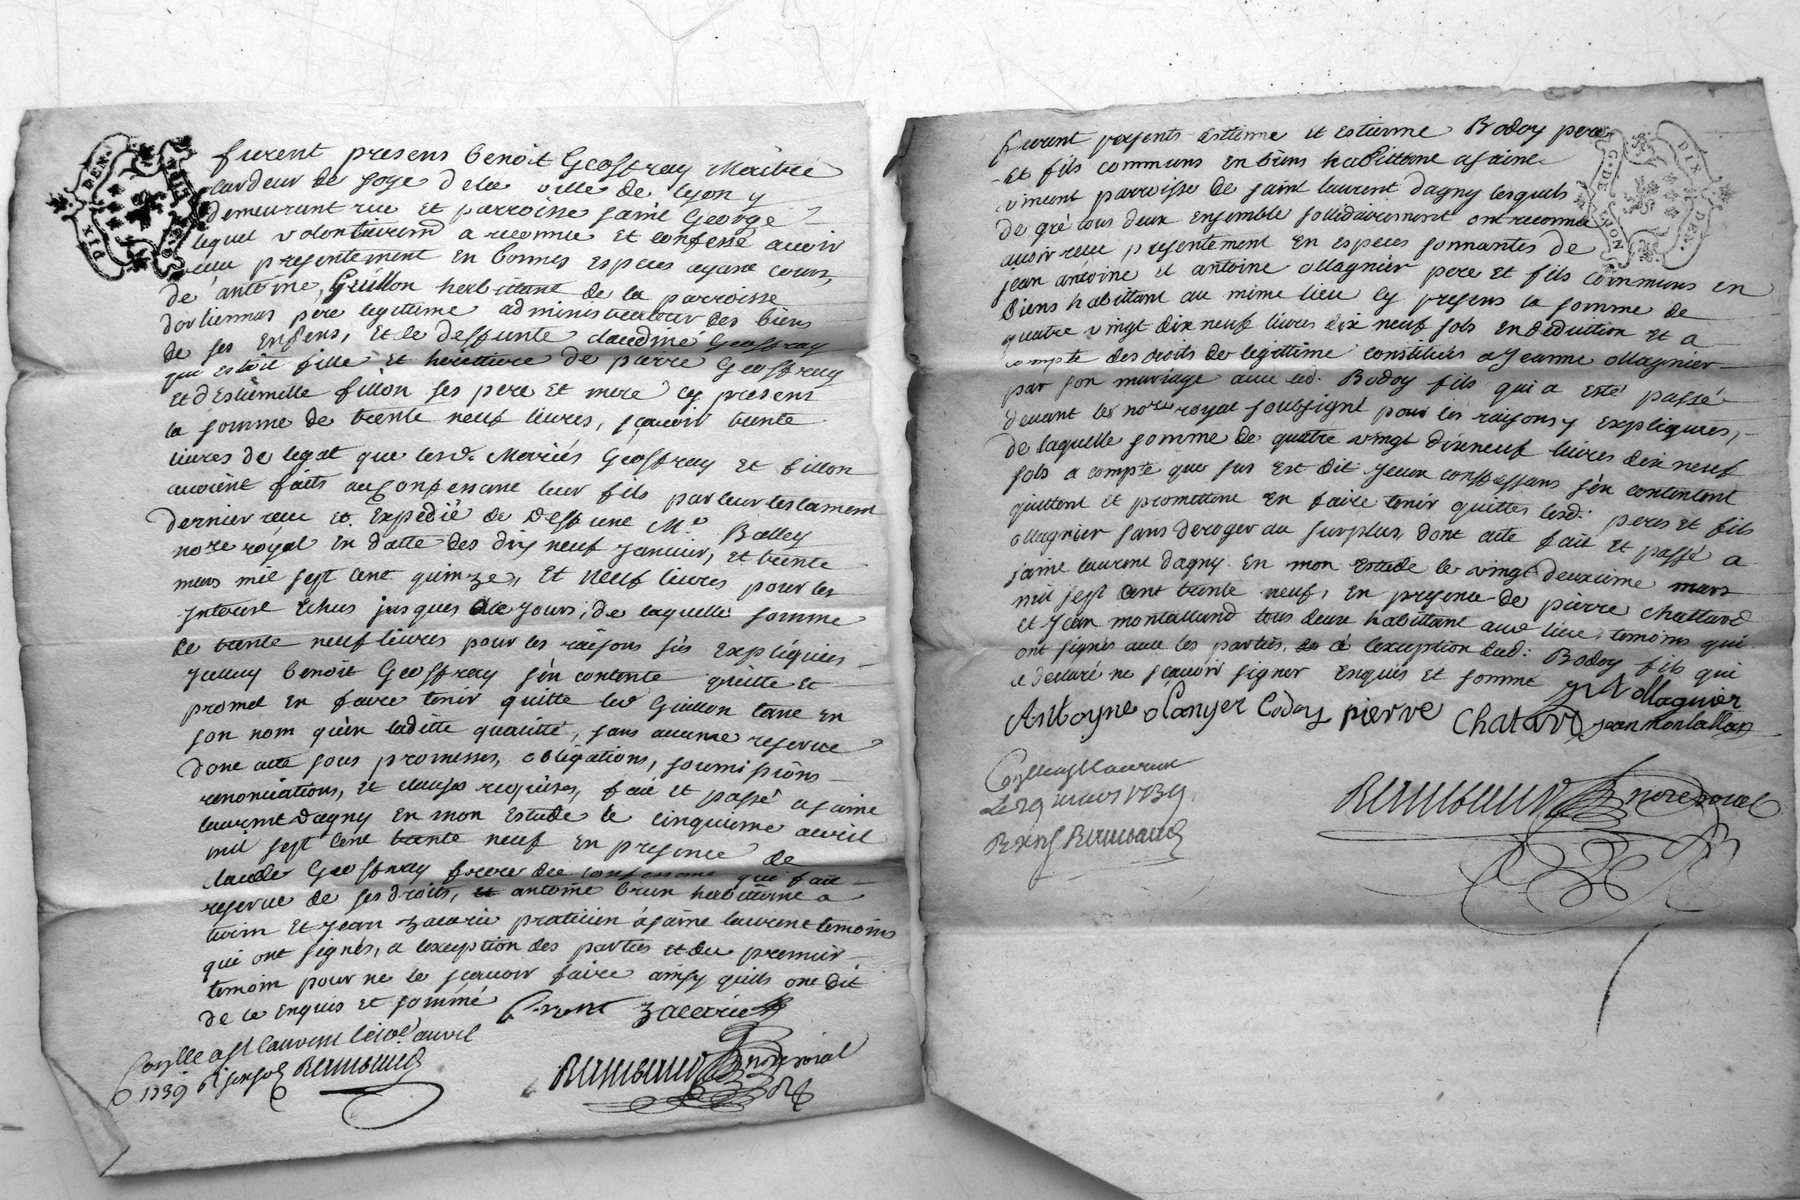 furent presens benoit Geoffray Maitre
cardeur de soye de la ville de lyon y
demeurant rue et parroisse saint George
lequel volontairemt a reconnu et confessé avoir
receu presentement en bonnes especes ayant cours,
de antoine Guillon habittant de la parroisse
d'orliennas pere legitime administrateur des biens
de ses enfens, et de deffunte claudine Geoffray
qui estoit fille et heritiere de pierre Geoffray
et d'estiennette fillon ses pere et mere cy present
la somme de trente neuf livres, sçavoir trente
livres de legat que lesd. Mariés Geoffray et fillon
avoient faits au confessant leur fils par leur testament
dernier receu et expedié de deffunt Me Balley
nore royal en datte des dix neuf janvier, et trente
mars mil sept cent quinze, et neuf livres pour les
interest echus jusques a ce jours, de laquelle somme
de trente neuf livres pour les raisons sus expliquées
yceluy benoit Geoffray s'en contente quitte et
promet en faire tenir quitte led Guillon tant en
son nom qu'en laditte qualitté, sans aucune reserve
dont acte sous promesses, obligations, soumissions
renonciations, et clauses requises, fait et passé a saint
laurent dagny en mon estude le cinquieme avril
mil sept cent trente neuf en presence de
claude Geoffray frere du confessant qui fait
reserve de ses droits, et antoine brun habittant a
turin et jean zacarie praticien a saint laurent temoins
qui ont signés, a l'exception des parties et du premier
temoin pour ne le sçavoir faire ainsy quils ont dit
de ce enquis et sommé
zacarie
1739
nore roial
DIX DEN.
furent presents estienne et estienne Bodoy pere
et fils communs en biens habittant a saint
vincent parroisse de saint laurent dagny lesquels
de gré tous deux ensemble sollidairement ont reconnu
avoir receu presentement en especes sonnantes de
jean antoine et antoine Ollagnier pere et fils communs en
biens habittant au même lieu cy presens la somme de
quatre vingt dix neuf livres dix neuf sols en deduction et a
compte des droits de legittime constitués a jeanne Ollagnier
par son mariage avec led. Bodoy fils qui a esté passé
devant le nore royal soubsigné pour les raisons y expliquées,
de laquelle somme de quatre vingt dixneuf livres dix neuf
sols a compte que sus est dit yceux confessans s'en contentent
quittent et promettent en faire tenir quittes lesd. peres et fils
Ollagnier sans deroger au surplus, dont acte fait et passé a
saint laurent dagny en mon estude le vingt deuxieme mars
mil sept cent trente neuf, en presence de pierre chattard
et jean montalland tous deux habittant aud lieu, temoins qui
ont signés avec les parties, a l'exception dud: Bodoy fils qui
a declaré ne sçavoir signer enquis et sommé
Antoyne olanyer bodoy pierre chatard
Ollagnier
jean montallan
Le 29 mars 1739
nore roial
G. DE LYON
DIX DEN.